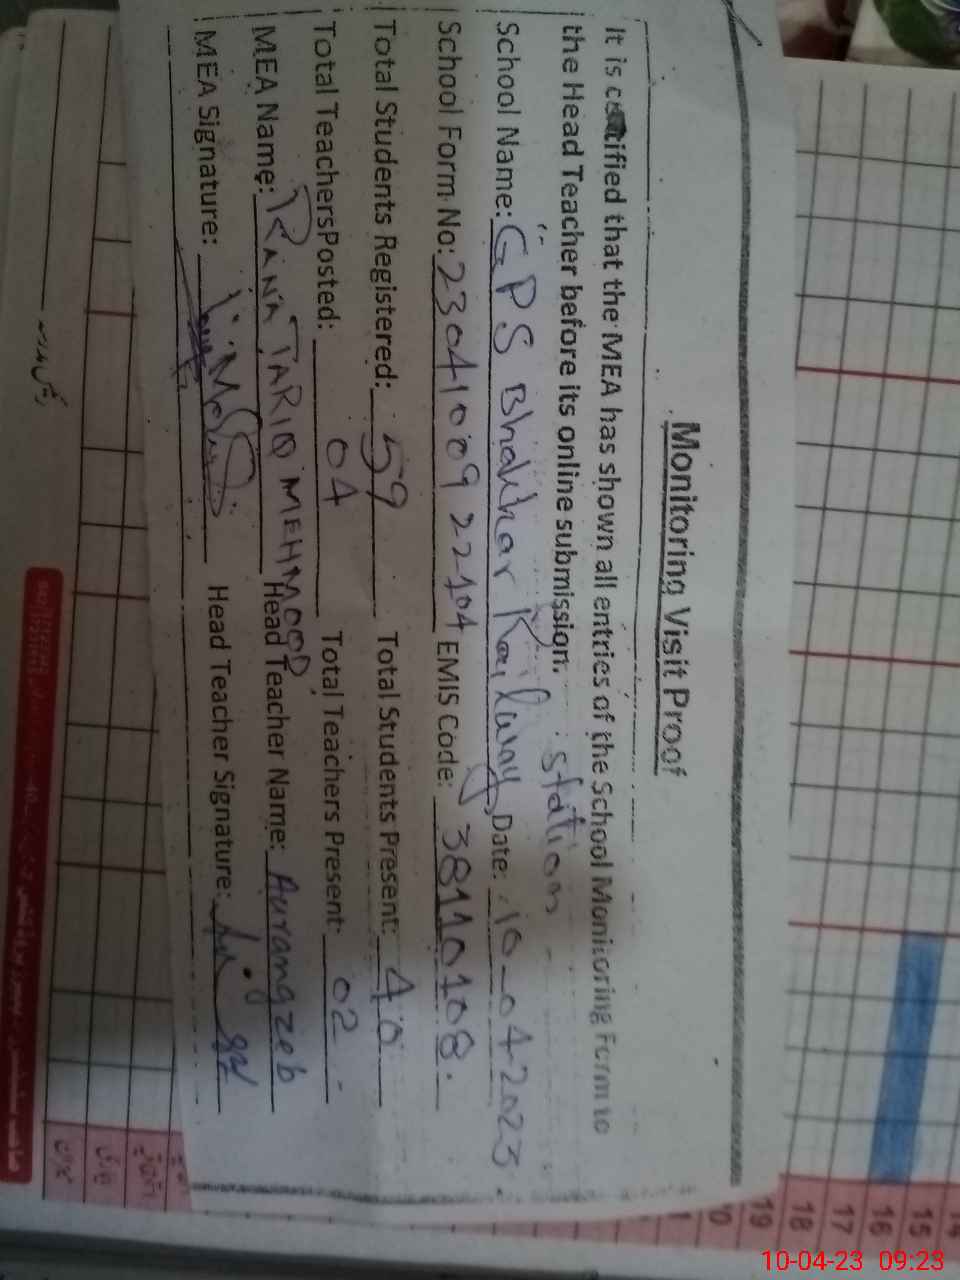 Monitoring Visit Proof
It is certified that the MEA has shown all entries of the School Monitoring Form to
the Head Teacher before its online submission.
School Name: GPS Bhakhar Railway station Date: 10-04-2023
School Form No: 23041009 22104 EMIS Code: 38110108
Total Students Registered: 59 Total Students Present: 40
Total TeachersPosted: 04 Total Teachers Present: 02
MEA Name: RANA TARIQ MEHMOOD Head Teacher Name: Aurangzeb
MEA Signature: Head Teacher Signature:
14
15
16
17
18
19
10-04-23 09:23